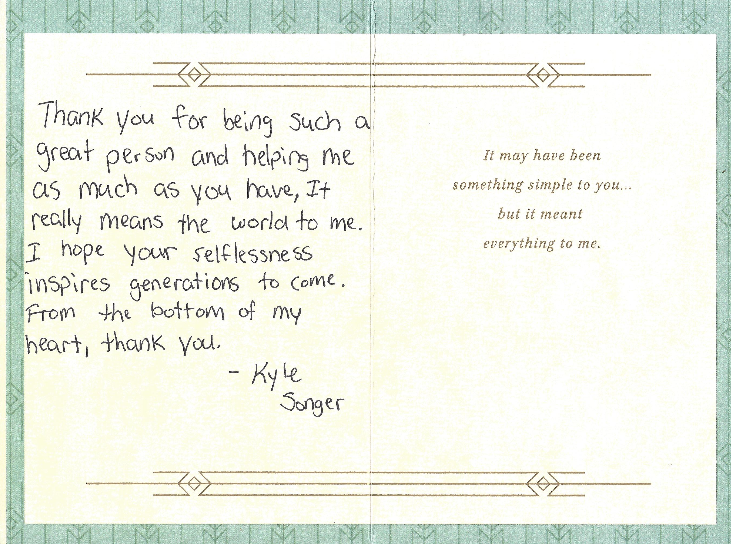 Thank you for being such a
great person and helping me
as much as you have, It
really means the world to me.
I hope your selflessness
inspires generations to come.
From the bottom of my
heart, thank you.
- Kyle
Songer
It may have been
something simple to you...
but it meant
everything to me.